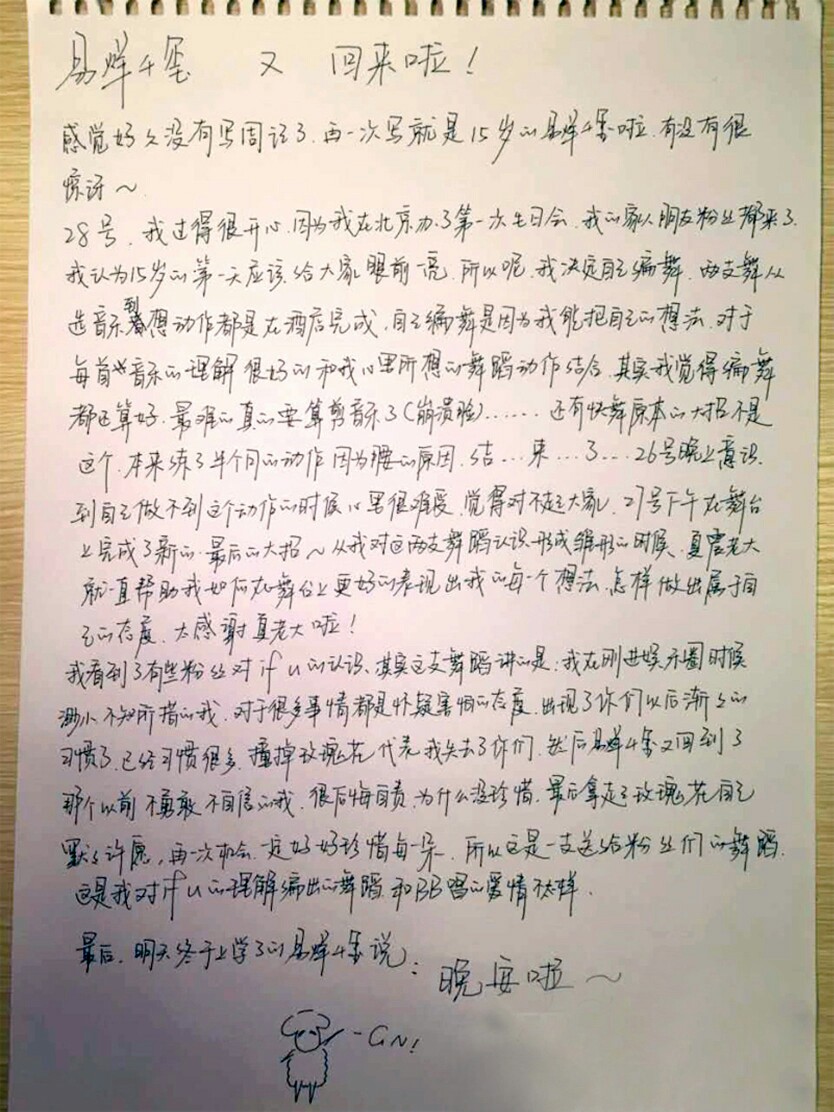 易烊千玺 又 回来啦!
感觉好久没有写周记了.再一次写就是15岁的易烊千玺啦.有没有很
惊讶~
28号.我过得很开心.因为我在北京办了第一次生日会.我的家人朋友粉丝都来了.
我认为15岁的第一天应该给大家眼前一亮.所以呢.我决定自己编舞.两支舞从
选音乐到想动作都是在酒店完成.自己编舞是因为我能把自己的想法.对于
每首音乐的理解很好的和我心里所想的舞蹈动作结合.其实我觉得编舞
都还算好.最难的真的要算剪音乐了(崩溃脸)......还有快舞原本的大招不是
这个.本来练了半个月的动作因为腰的原因.结...束...了...26号晚上意识
到自己做不到这个动作的时候心里很难受.觉得对不起大家.27号下午在舞台
上完成了新的.最后的大招~从我对这两支舞蹈认识.形成雏形的时候.夏震老大
就一直帮助我如何在舞台上更好的表现出我的每一个想法.怎样做出属于自
己的态度.太感谢夏老大啦!
我看到了有些粉丝对if u的认识.其实这支舞蹈讲的是:我在刚进娱乐圈时候
渺小.不知所措的我.对于很多事情都是怀疑害怕的态度.出现了你们以后渐渐的
习惯了.已经习惯很多.撞掉玫瑰花代表我失去了你们.然后易烊千玺又回到了
那个以前不勇敢不自信的我.很后悔自责.为什么没珍惜.最后拿起了玫瑰花自己
默默许愿.再一次机会.一定好好珍惜每一朵.所以这是一支送给粉丝们的舞蹈.
这是我对if u的理解编出的舞蹈.和BB唱的爱情不太一样.
最后.明天终于上学了的易烊千玺说:
晚安啦~
-GN!